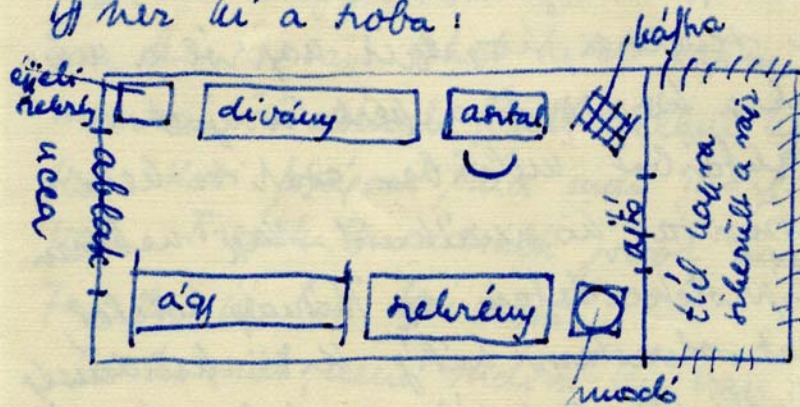 Így néz ki a szoba:
kályha
éjjeli
szekrény
dívány
asztal
ucca
ablak
ajtó
túl nagyra
sikerült a rajz
ágy
szekrény
mosdó